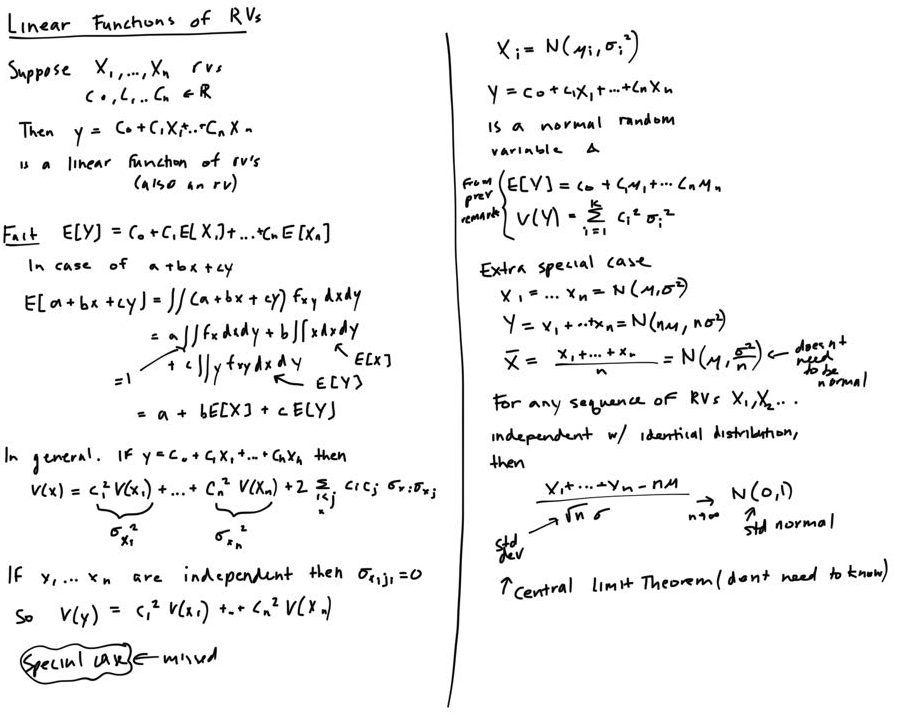 Linear Functions of RVs
Suppose X₁,...,Xₙ rvs
c₀, c,.. Cₙ ∈ ℝ
Then y = C₀+C₁X₁+..+CₙXₙ
is a linear function of rv's
(also an rv)
Fact E[Y] = C₀+C₁E[X₁]+...+CₙE[Xₙ]
In case of a+bx+cy
E[a+bx+cy] = ∬(a+bx+cy) fxy dxdy
= a∬fxdxdy + b∬xdxdy
E[X]
=1
+ c∬y fxy dxdy
E[Y]
= a + bE[X] + cE[Y]
In general. If y=C₀+C₁X₁+...+CₙXₙ then
V(x) = c₁²V(x₁) +...+ Cₙ²V(Xₙ)+2 Σ i<j cᵢcⱼ σxᵢσxⱼ
σx₁² σxₙ²
If x₁...xₙ are independent then σxᵢjᵢ=0
So V(y) = c₁²V(x₁) +..+ Cₙ²V(Xₙ)
Special case ← missed
Xᵢ = N(μᵢ,σᵢ²)
Y = c₀+c₁X₁+...+cₙXₙ
is a normal random
variable &
From prev remark
E[Y] = c₀ + C₁μ₁+... Cₙμₙ
V(Y) = Σ i=1 k cᵢ²σᵢ²
Extra special case
X₁=...Xₙ=N(μ,σ²)
Y = x₁+..+xₙ=N(nμ, nσ²)
X̄ = (x₁+...+xₙ)/n = N(μ, σ²/n) ← doesnt need to be normal
For any sequence of RVs X₁,X₂...
independent w/ identical distribution,
then
(X₁+...+Xₙ-nμ)/(√n σ) → n→∞ N(0,1)
std dev
std normal
↑ Central limit Theorem (dont need to know)